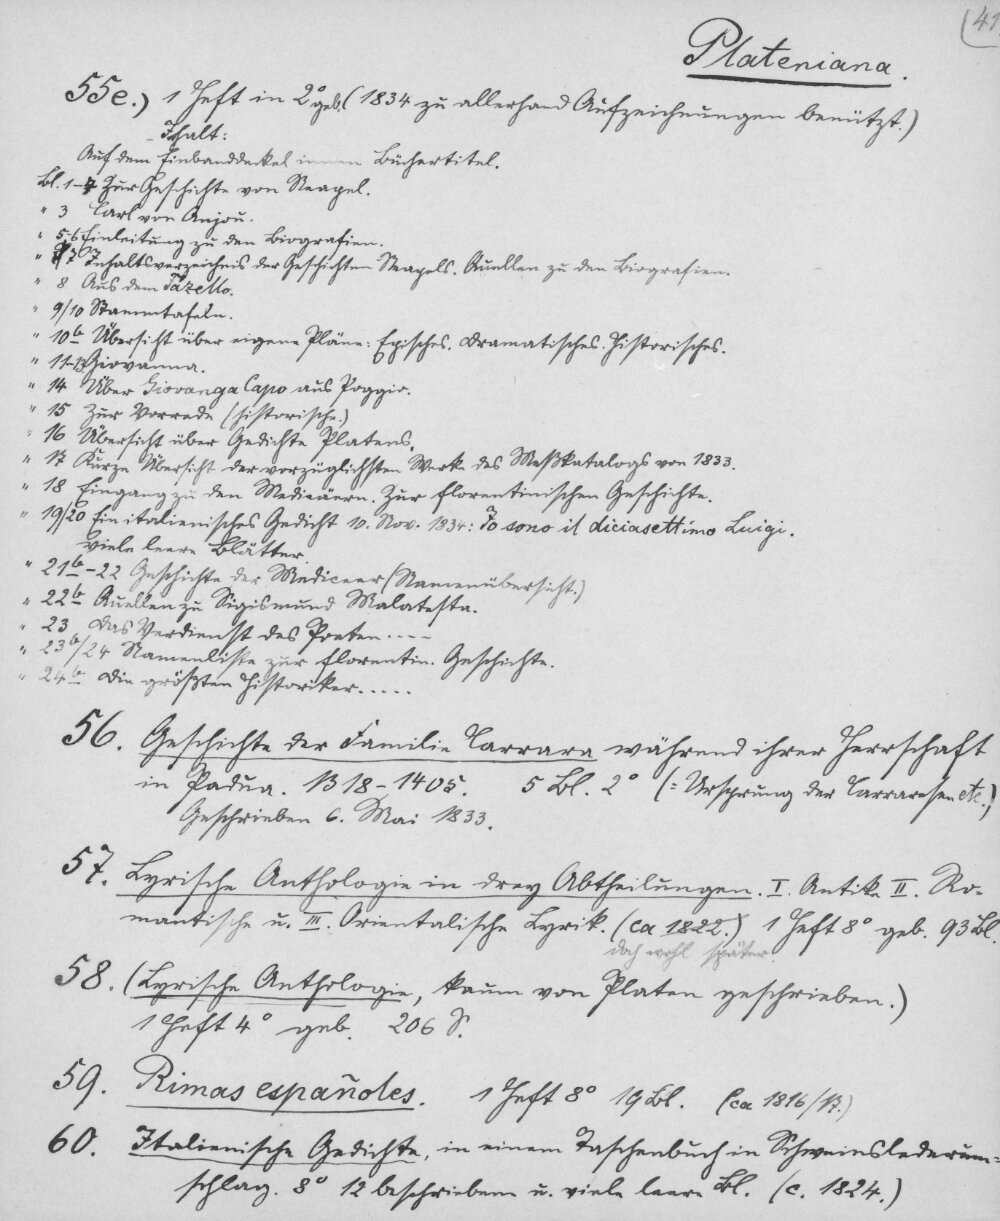 (41
Plateniana.
55e.) 1 Heft in 2° geb. (1834 zu allerhand Aufzeichnungen benützt.)
Inhalt:
Auf dem Einbanddeckel innen Büchertitel.
Bl. 1- Zur Geschichte von Neapel.
" 3 Carl von Anjou.
" 5-6 Einleitung zu den Biografien.
" 7 Inhaltsverzeichnis der Geschichten Neapels. Quellen zu den Biografien.
" 8 Aus dem Fazello.
" 9/10 Stammtafeln.
" 10b Übersicht über eigene Pläne: Episches. Dramatisches. Historisches.
" 11-13 Giovanna.
" 14 Über Capo aus Poggio.
" 15 Zur Vorrede (historische.)
" 16 Übersicht über Gedichte Platens.
" 17 Kurze Übersicht der vorzüglichsten Werke des Meßkatalogs von 1833.
" 18 Eingang zu den Mediceern. Zur florentinischen Geschichte.
" 19/20 Ein italienisches Gedicht 10. Nov. 1834: Io sono il diciasettimo Luigi.
viele leere Blätter
" 21b-22 Geschichte der Mediceer (Namenübersicht.)
" 22b Quellen zu Sigismund Malatesta.
" 23 Das Verdienst des Poeten ....
" 23b/24 Namenliste zur florentin. Geschichte.
" 24b Die größten Historiker.....
56. Geschichte der Familie Carrara während ihrer Herrschaft
in Padua. 1318-1405. 5 Bl. 2° (: Ursprung der Carraresen etc.)
Geschrieben 6. Mai 1833.
57. Lyrische Anthologie in drey Abtheilungen. I. Antike II. Ro-
mantische u. III. Orientalische Lyrik. (ca 1822.) 1 Heft 8° geb. 93 Bl.
doch wohl später
58. (Lyrische Anthologie, kaum von Platen geschrieben.)
1 Heft 4° geb. 206 S.
59. Rimas españoles. 1 Heft 8° 19 Bl. (ca 1816/17.)
60. Italienische Gedichte, in einem Taschenbuch in Schweinslederum-
schlag. 8° 12 beschriebene u. viele leere Bl. (c. 1824.)